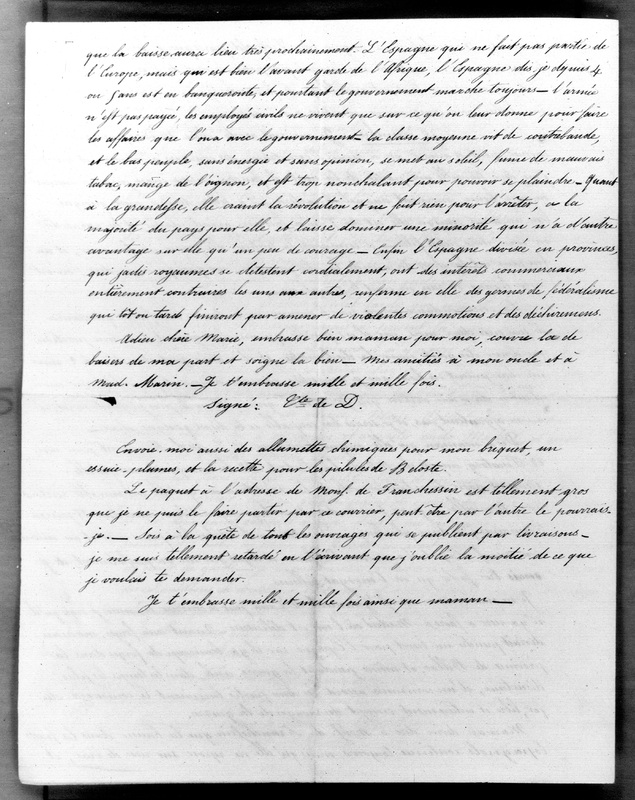 que la baisse aura lieu très prochainement. L'Espagne qui ne fait pas partie de
l'Europe, mais qui est bien l'avant garde de l'Afrique, l'Espagne dis je depuis 4
ou 5 ans est en banqueroute, et pourtant le gouvernement marche toujours — l'armée
n'est pas payée, les employés civils ne vivent que sur ce qu'on leur donne pour faire
les affaires que l'on a avec le gouvernement — la classe moyenne vit de contrebande,
et le bas peuple, sans énergie et sans opinion, se met au soleil, fume de mauvais
tabac, mange de l'oignon, et est trop nonchalant pour pouvoir se plaindre — Quant
à la grandesse, elle craint la révolution et ne fait rien pour l'arrêter, a la
majorité du pays pour elle, et laisse dominer une minorité qui n'a d'autre
avantage sur elle qu'un peu de courage — Enfin l'Espagne divisée en provinces,
qui jadis royaumes se detestent cordialement, ont des intérêts commerciaux
entièrement contraires les uns aux autres, renferme en elle des germes de fédéralisme
qui tôt ou tard finiront par amener de violentes commotions et des déchiremens.
Adieu chère Marie, embrasse bien maman pour moi, couvre la de
baisers de ma part et soigne la bien — Mes amitiés à mon oncle et à
Mad. Marin. — Je t'embrasse mille et mille fois.
Signé: Vte de D.
Envoie-moi aussi des allumettes chimiques pour mon briquet, un
essuie-plumes, et la recette pour les pilules de Beloste.
Le paquet à l'adresse de Mons. de Franchessin est tellement gros
que je ne puis le faire partir par ce courrier, peut être par l'autre le pourrais-
-je. — Sois à la quête de tout les ouvrages qui se publient par livraisons —
je me suis tellement retardé en t'écrivant que j'oublie la moitié de ce que
je voulais te demander.
Je t'embrasse mille et mille fois ainsi que maman —